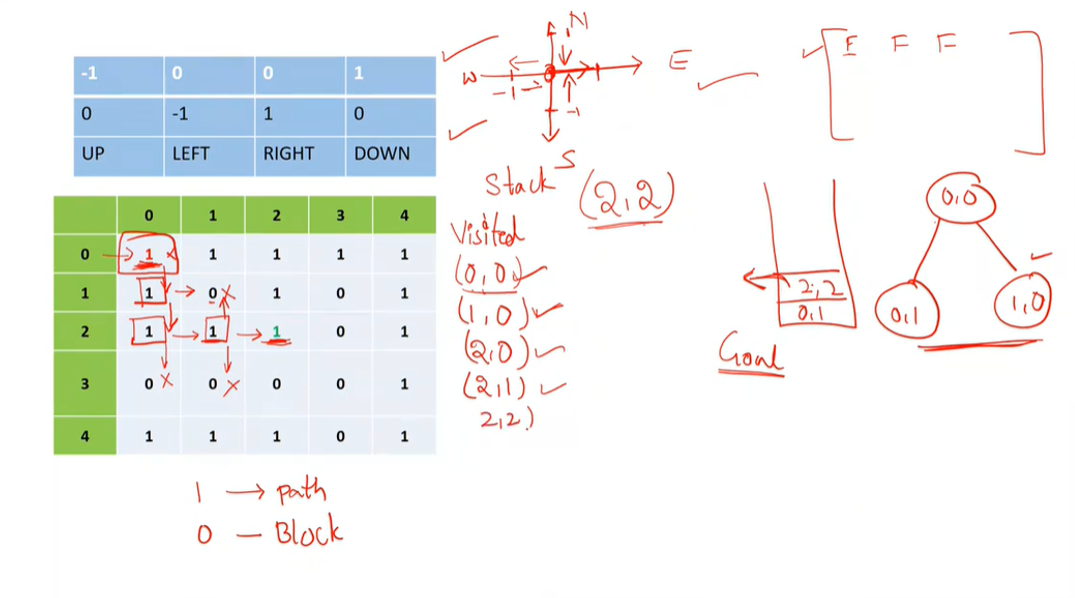 -1 0 0 1
0 -1 1 0
UP LEFT RIGHT DOWN
N
W E
-1
-1
S
F F F
0 1 2 3 4
0 1 1 1 1 1
1 1 0 1 0 1
2 1 1 1 0 1
3 0 0 0 0 1
4 1 1 1 0 1
1 → path
0 — Block
Stack
(2,2)
Visited
(0,0)
(1,0)
(2,0)
(2,1)
2,2)
2,2
0,1
Goal
0,0
0,1 1,0